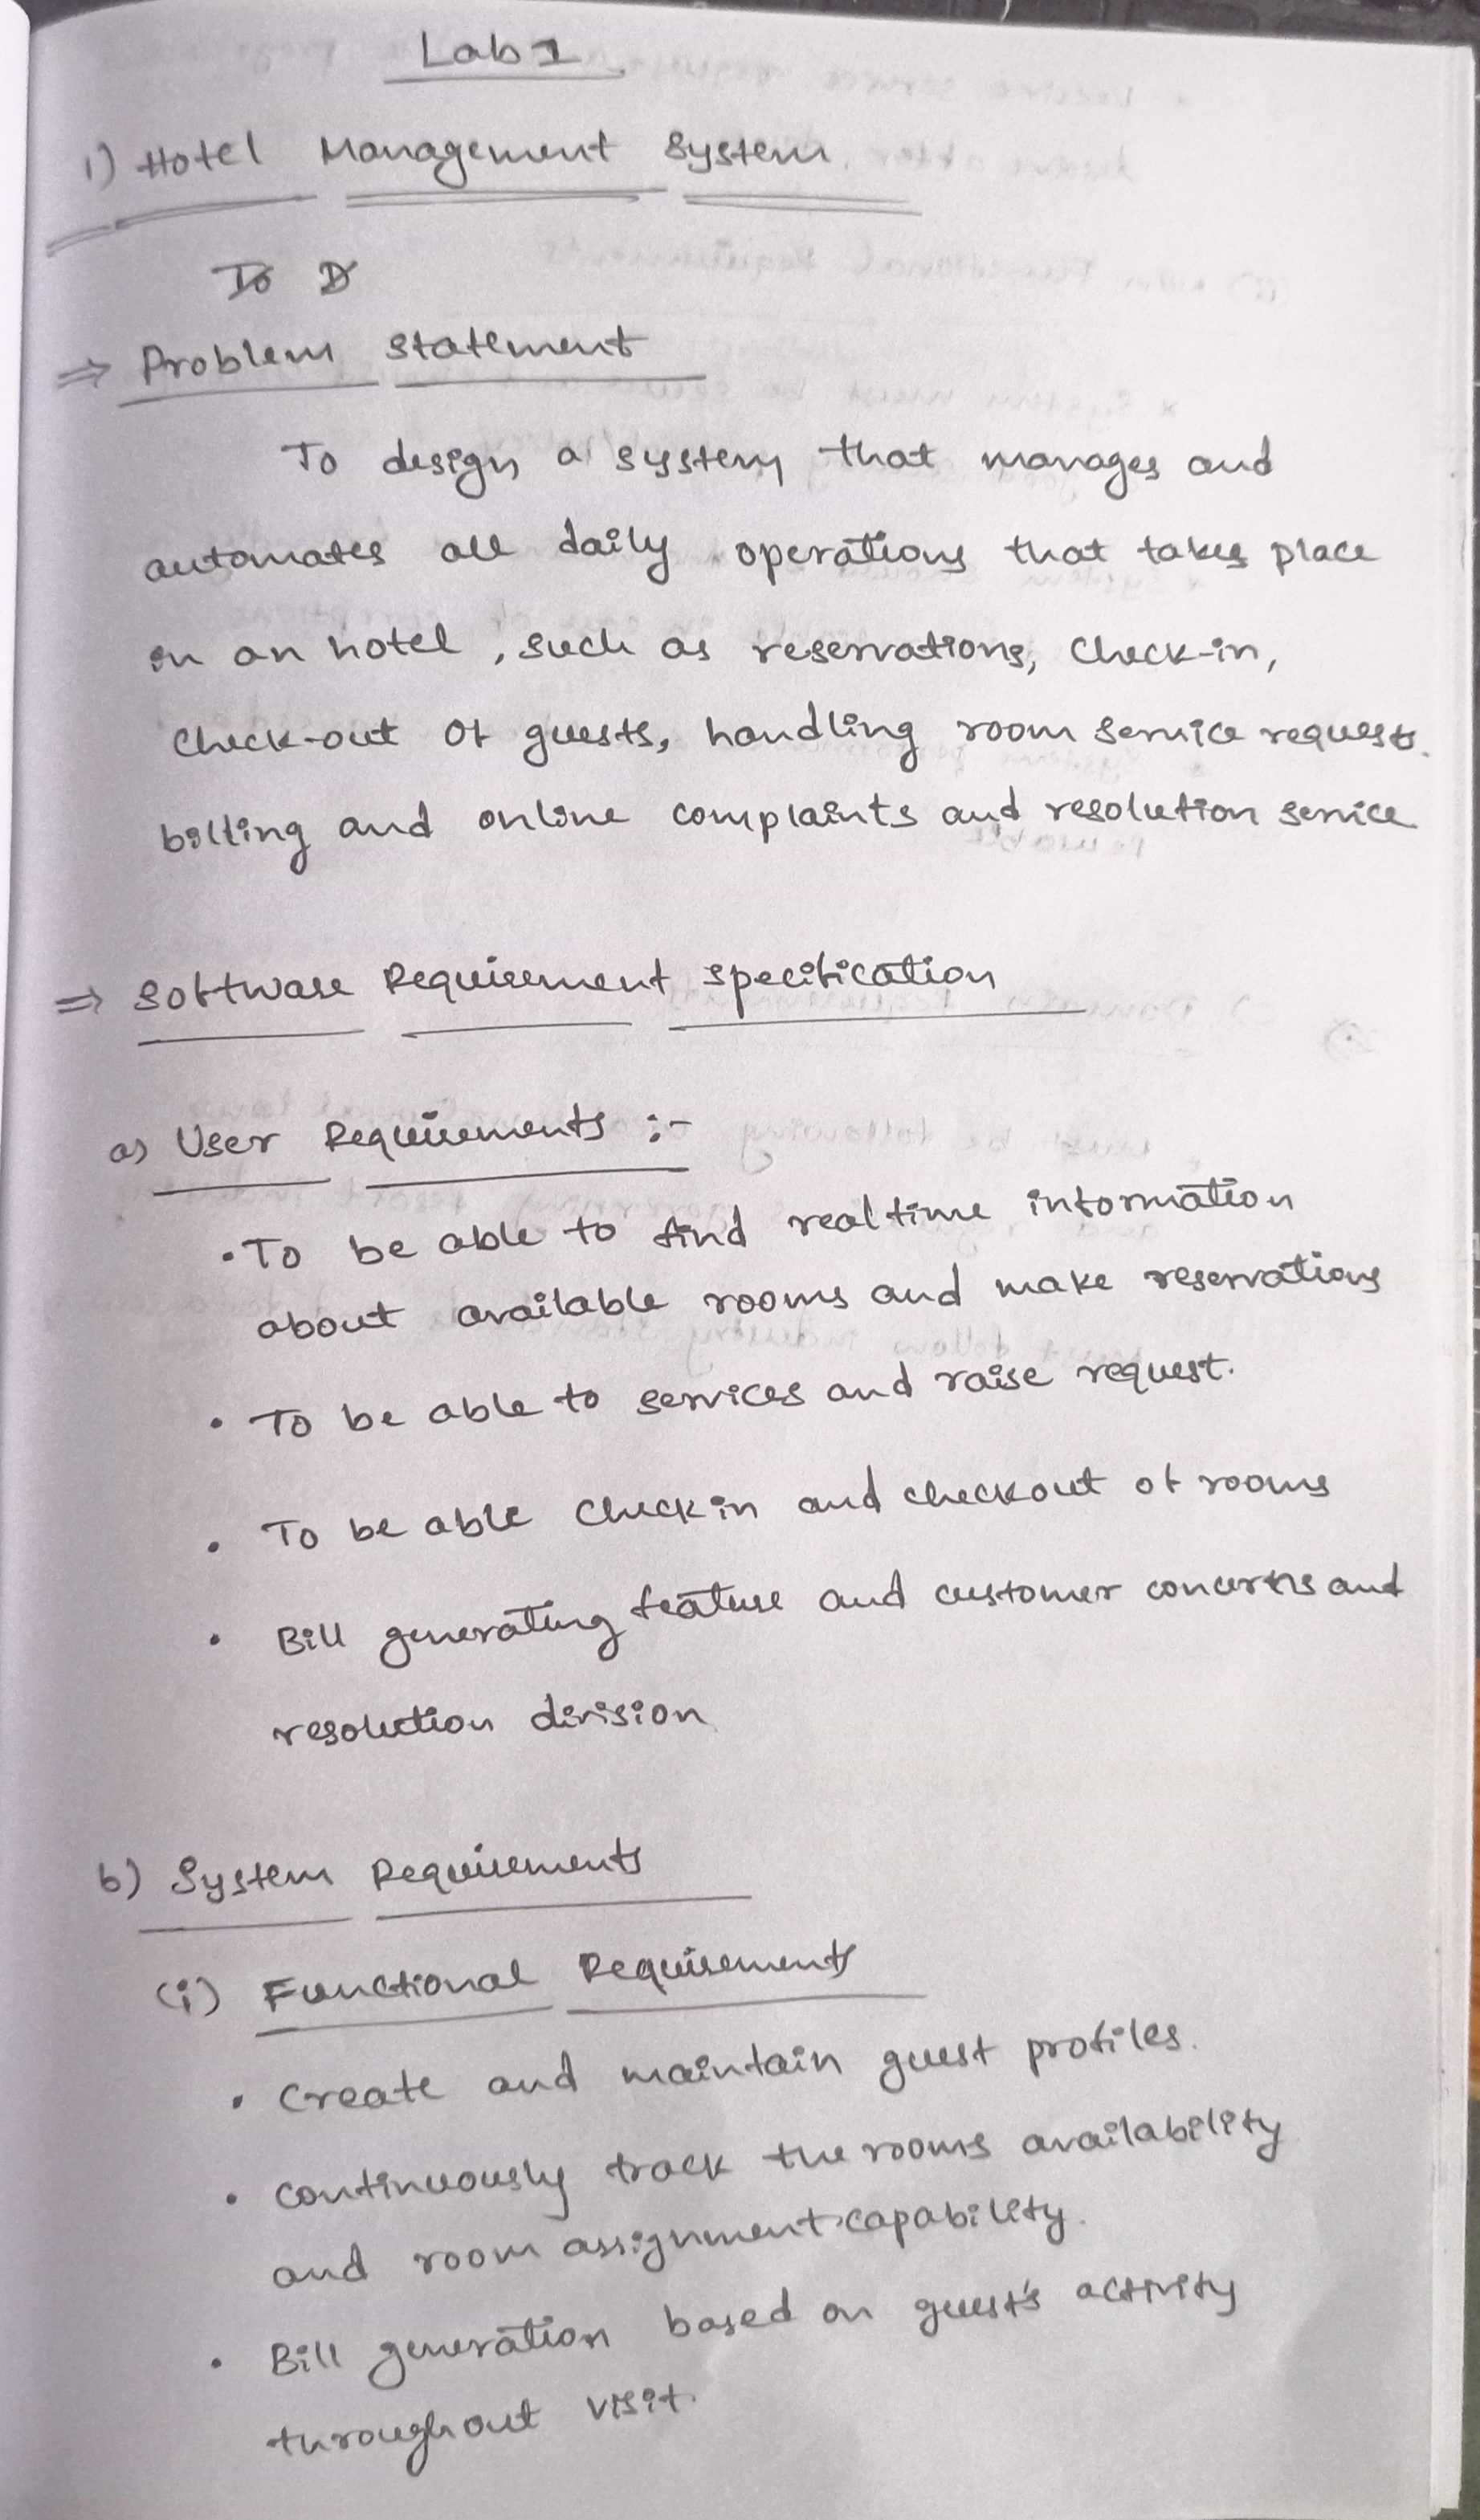 Lab 1
1) Hotel Management System
To D
⇒ Problem statement
To design a system that manages and
automates all daily operations that takes place
in an hotel, such as reservations, Check-in,
Check-out of guests, handling room service requests.
billing and online complaints and resolution service
⇒ Software Requirement specification
a) User Requirements :-
• To be able to find realtime information
about available rooms and make reservations
• To be able to services and raise request.
• To be able Checkin and checkout of rooms
• Bill generating feature and customer concerns and
resolution division
b) System Requirements
(i) Functional Requirements
• Create and maintain guest profiles.
• continuously track the rooms availability
and room assignment capability.
• Bill generation based on guest's activity
throughout visit.